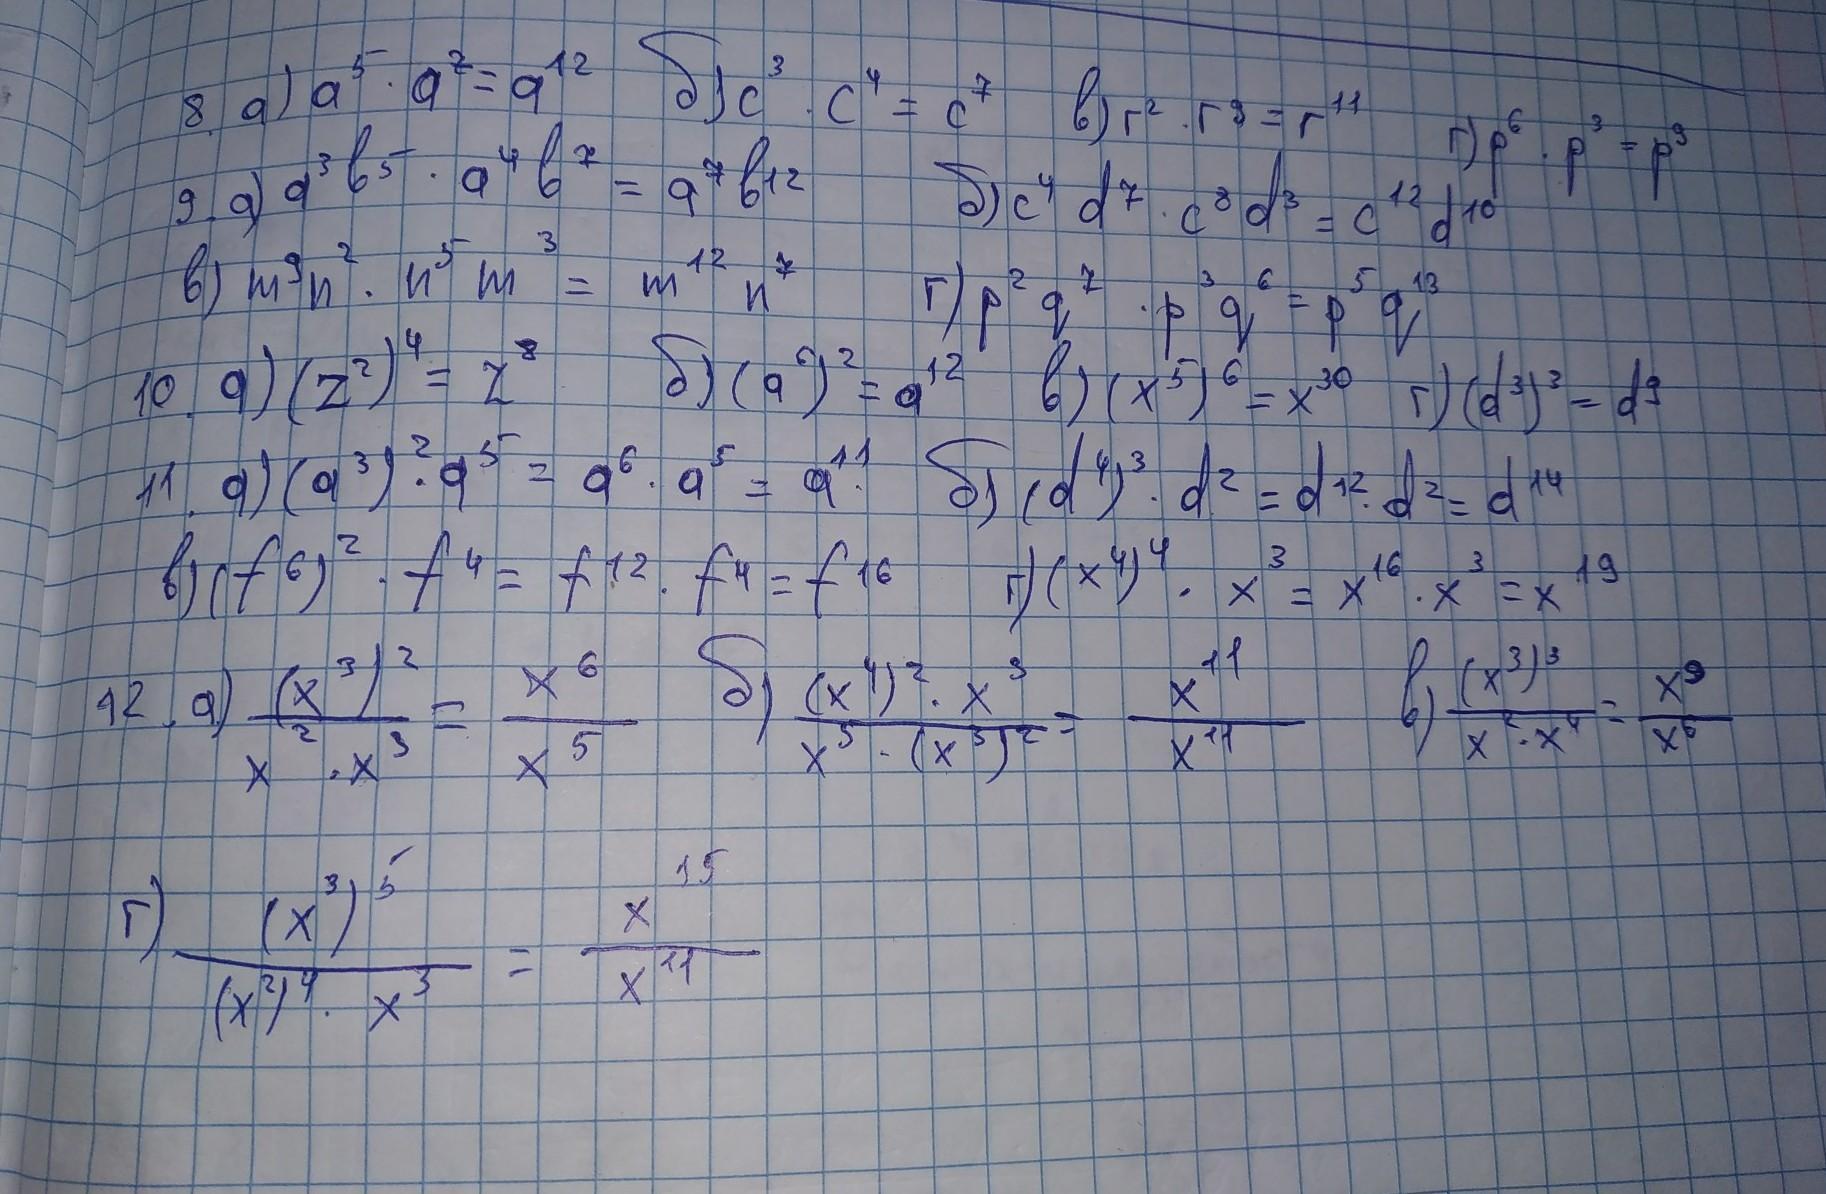 8. а) a⁵ · a⁷ = a¹² б) c³ · c⁴ = c⁷ в) r² · r⁹ = r¹¹ г) p⁶ · p³ = p⁹
9. а) a³b⁵ · a⁴b⁷ = a⁷b¹² б) c⁴d⁷ · c⁸d³ = c¹²d¹⁰
в) m⁹n² · n⁵m³ = m¹²n⁷ г) p²q⁷ · p³q⁶ = p⁵q¹³
10. а) (z²)⁴ = z⁸ б) (a⁶)² = a¹² в) (x⁵)⁶ = x³⁰ г) (d³)³ = d⁹
11. а) (a³)² · a⁵ = a⁶ · a⁵ = a¹¹. б) (d⁴)³ · d² = d¹² · d² = d¹⁴
в) (f⁶)² · f⁴ = f¹² · f⁴ = f¹⁶ г) (x⁴)⁴ · x³ = x¹⁶ · x³ = x¹⁹
12. а) (x³)² / x² · x³ = x⁶ / x⁵ б) (x⁴)² · x³ / x⁵ · (x³)² = x¹¹ / x¹¹ в) (x³)³ / x² · x⁴ = x⁹ / x⁶
г) (x³)⁵ / (x²)⁴ · x³ = x¹⁵ / x¹¹